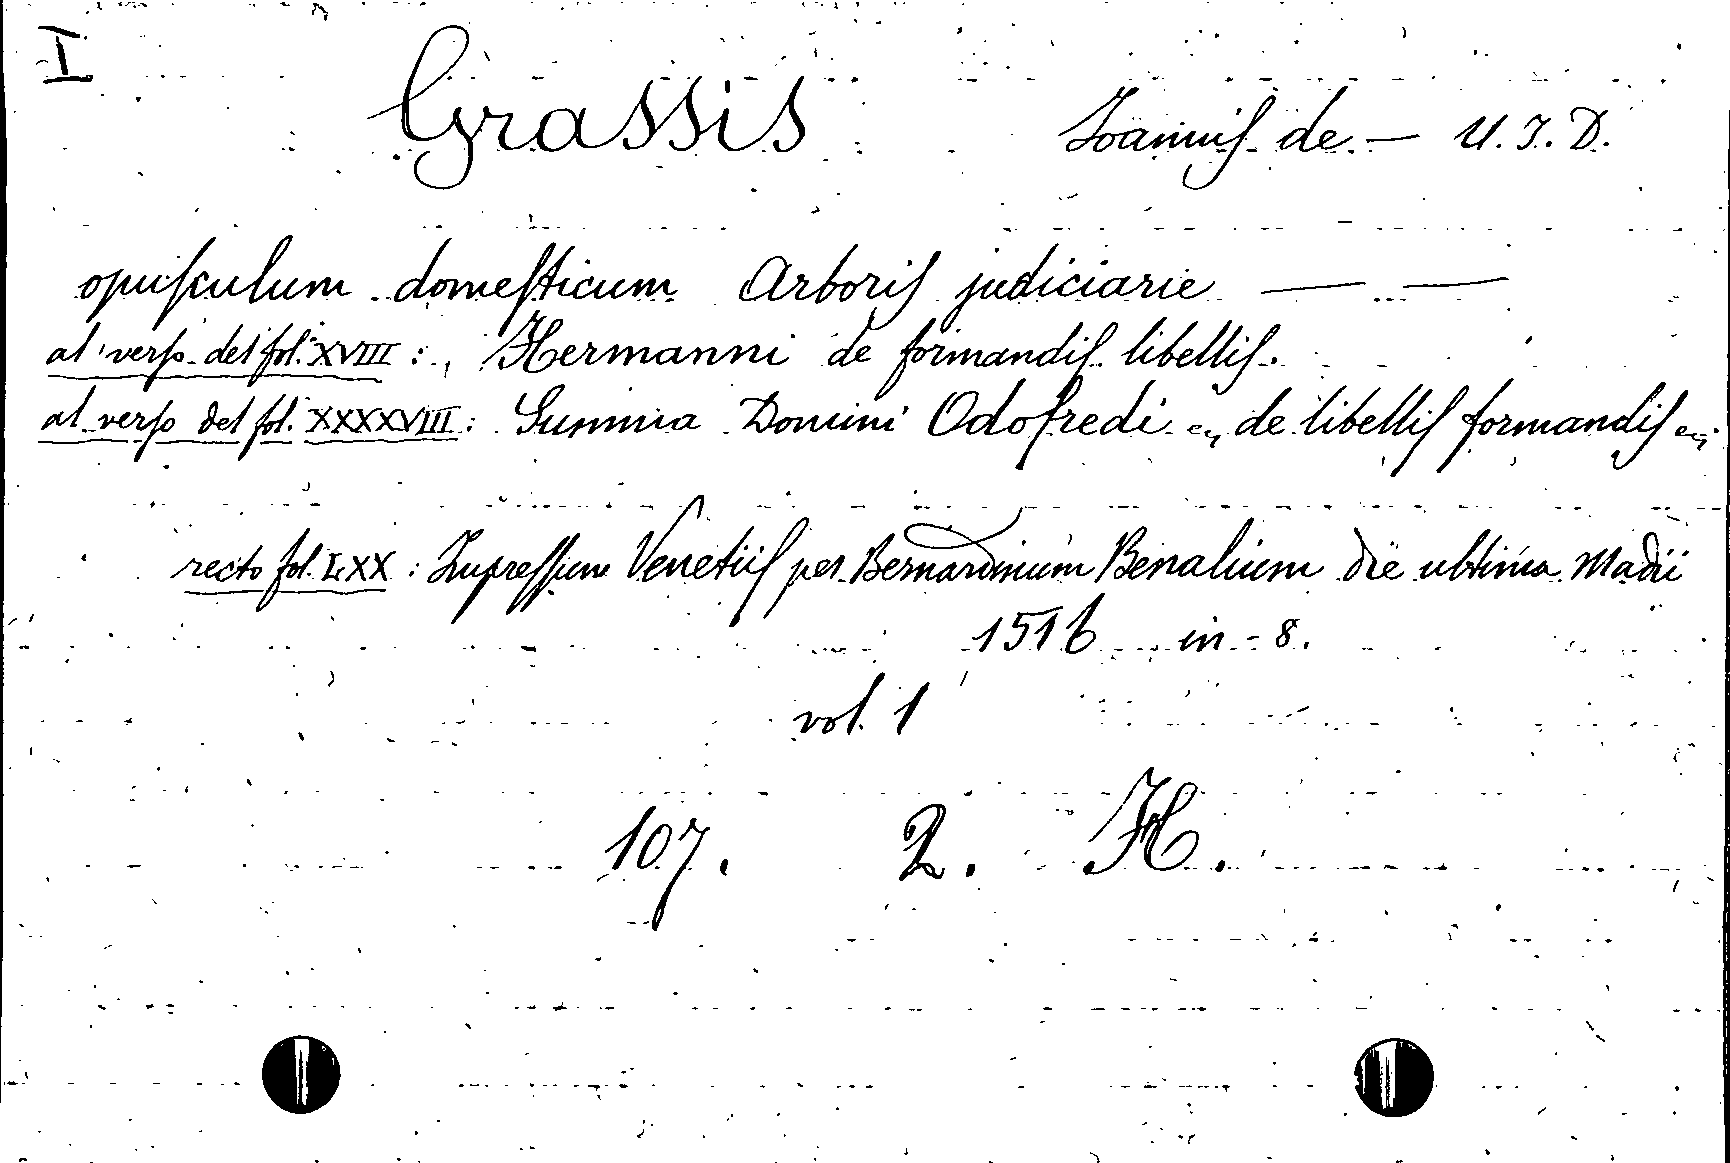 I
Grassis Joannis de — U. J. D.
opusculum domesticum Arboris judiciarie — —
al verso del fol. XVIII : Hermanni de formandis libellis.
al verso del fol. XXXXVIII : Summa Domini Odofredi de libellis formandis
recto fol. LXX : Impressum Venetiis per Bernardinum Benalium die ultima Madii
1516 in - 8.
vol. 1
107. 2. H.